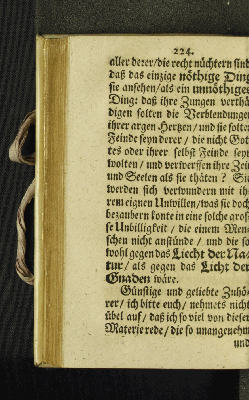 224.
aller derer/die recht nüchtern sind
daß das einzige nöthige Ding
sie ansehen/als ein unnöthiges
Ding: daß ihre Zungen verthä
digen solten die Verblendungen
ihrer argen Hertzen/und sie solten
Feinde seyn derer/die nicht Got
tes oder ihrer selbst Feinde seyn
wolten/und verwerffen ihre Zeit
und Seelen als sie thäten? Sie
werden sich verwundern mit ih
rem eignen Unwillen/was sie doch
bezaubern konte in eine solche gros
se Unbilligkeit/die einem Men
schen nicht anstünde/und die so
wohl gegen das Liecht der Na
tur/als gegen das Licht der
Gnaden wäre.
Günstige und geliebte Zuhö
rer/ich bitte euch/nehmets nicht
übel auf/daß ich so viel von dieser
Materie rede/die so unangenehm
und